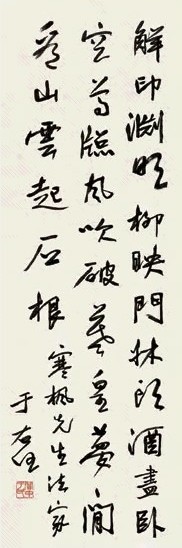 解印淵明柳映門牀頭酒盡臥
空尊臨風吹破羲皇夢閒
看山雲起石根
寒楓先生法家
于右任